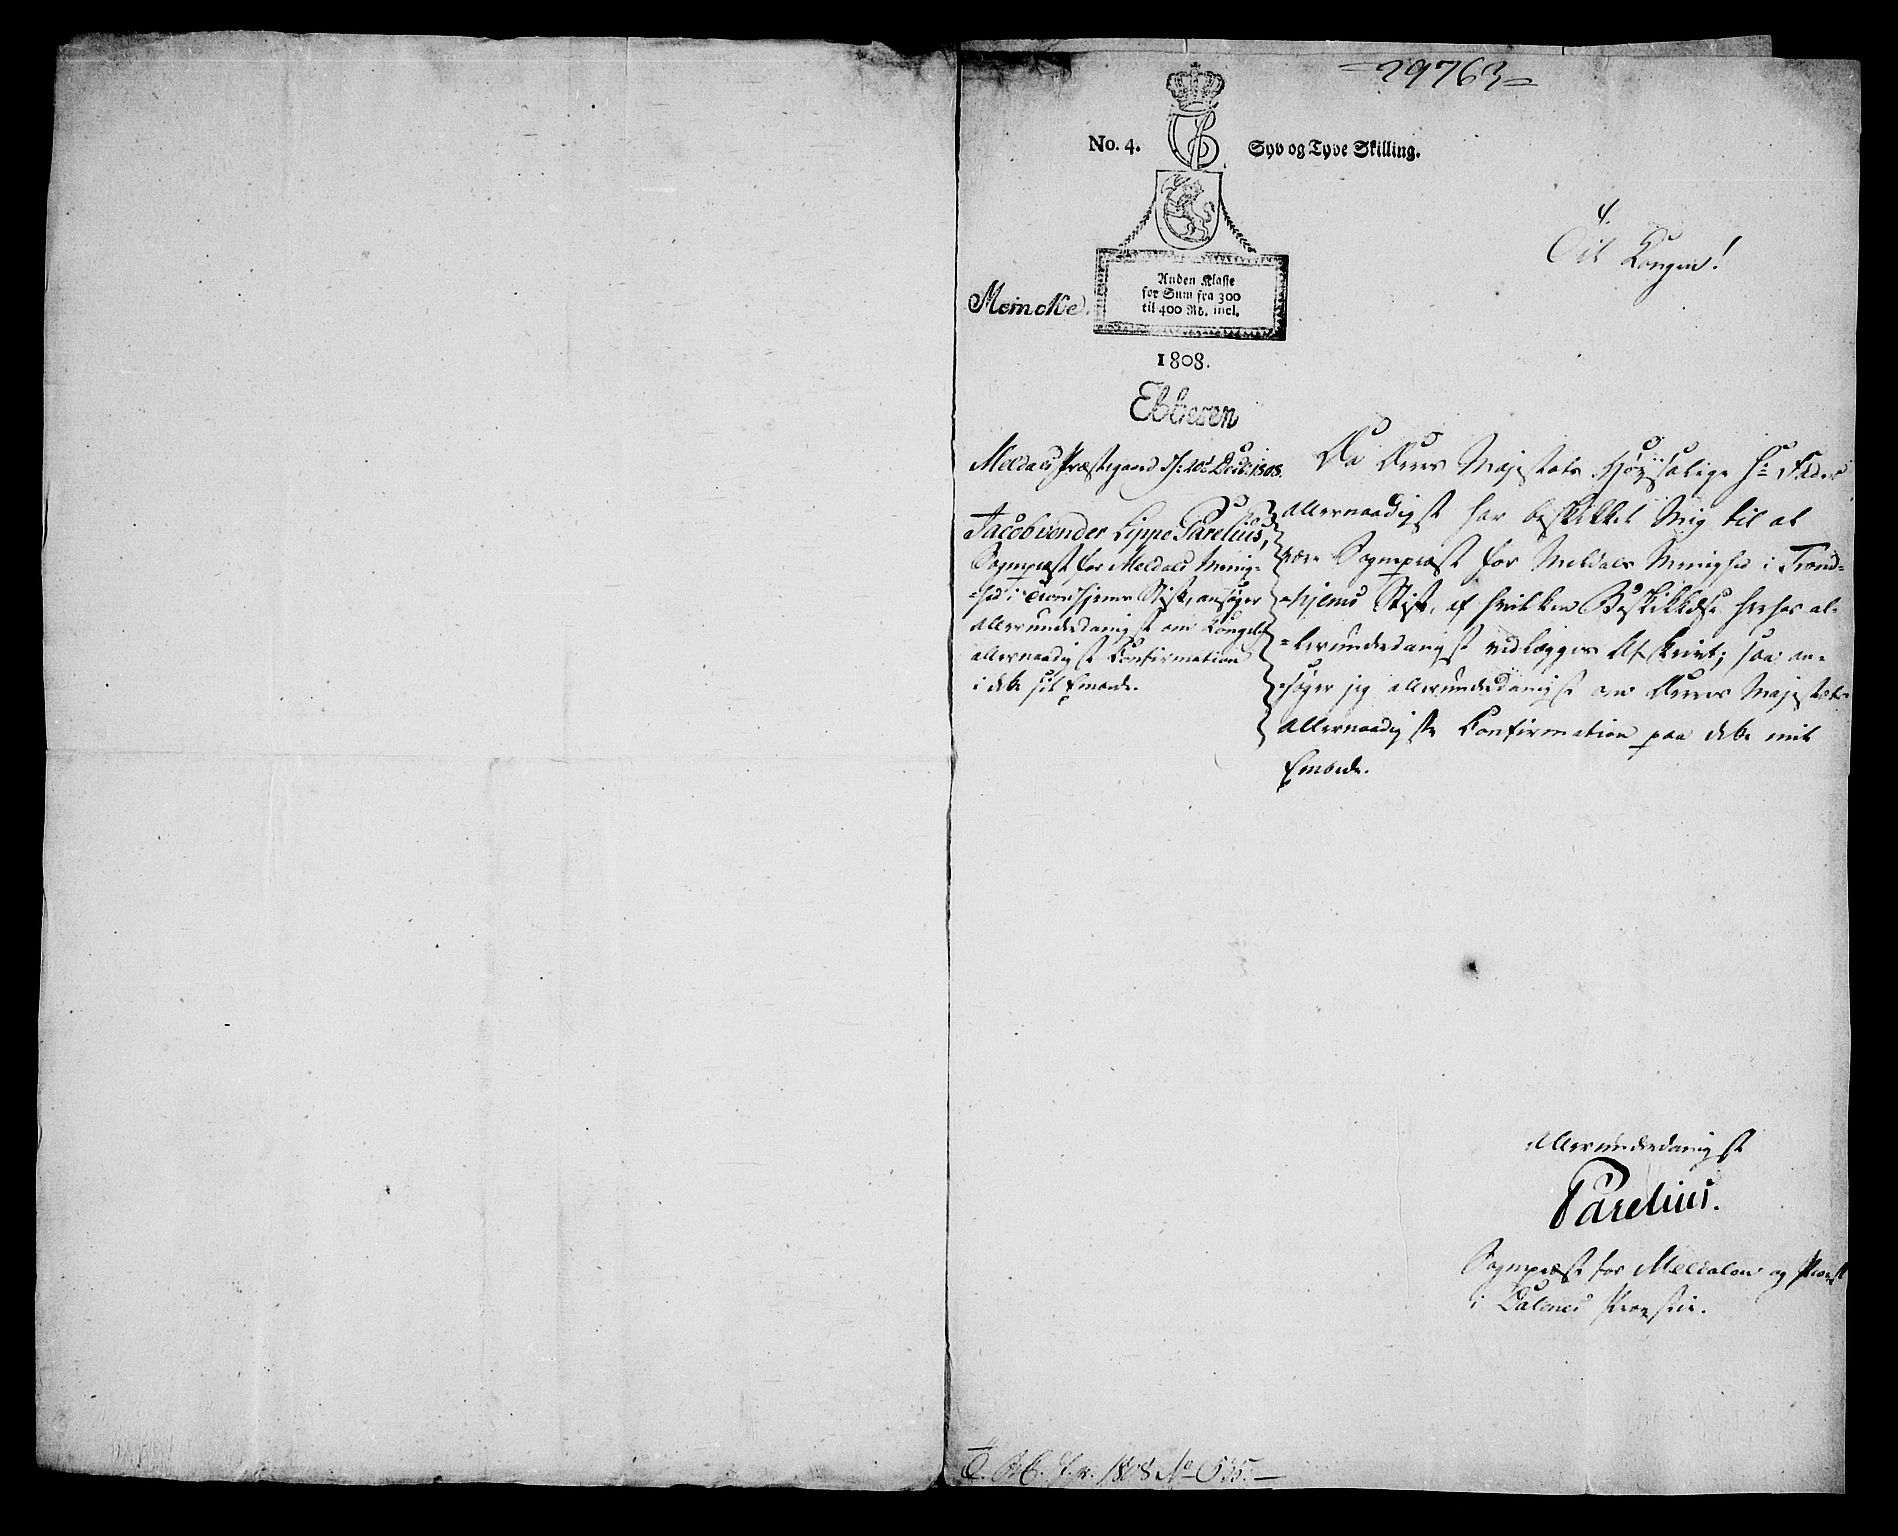 =29763=
No. 4.
Syv og Tyve Skilling.
4.
Til Kongen!
Anden Klasse
for Sum fra 300
til 400 Rd. incl.
Meincke.
1808.
Ebbesen
Meldals Præstegaard d: 20de Decbr: 1808.
Jacob vonder Lippe Parelius,
Sognepræst for Meldals Menig-
-hed i Trondhjems Stift, ansøger
allerunderdanigst om Kongelig
allernaadigst Confirmation
i dette sit Embede.
Da Deres Majestæts Høysalige Hr Fader
allernaadigst har beskikket Mig til at
være Sognepræst for Meldals Menighed i Trond-
-hjems Stift, af hvilken Beskikkelse herhos al-
-lerunderdanigst vedlægges Afskrivt; saa an-
-søger jeg allerunderdanigst om Deres Majestæts
allernaadigste Confirmation paa dette mit
Embede.
Allerunderdanigst
Parelius.
Sognepræst for Meldalen og Provst
i Dalenes Provstie.
1808 No 535.